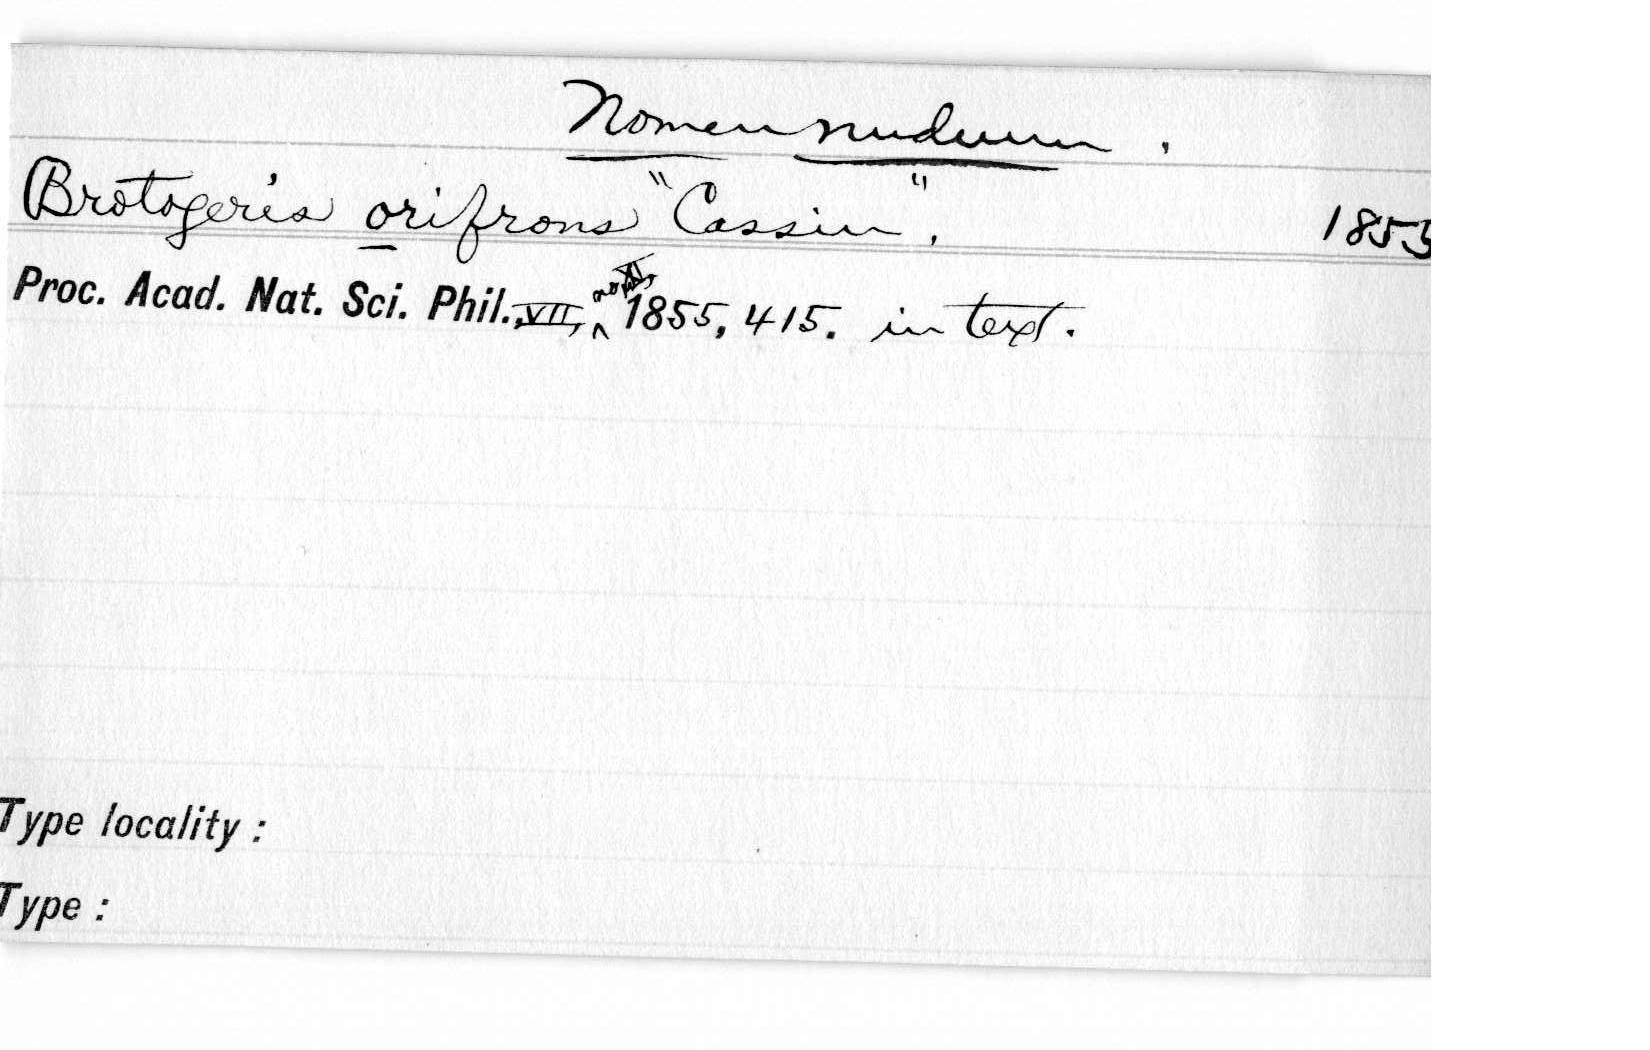 Nomen nudum.
Brotogeris orifrons "Cassin". 1855
Proc. Acad. Nat. Sci. Phil., VII, no XI, 1855, 415. in text.
Type locality :
Type :